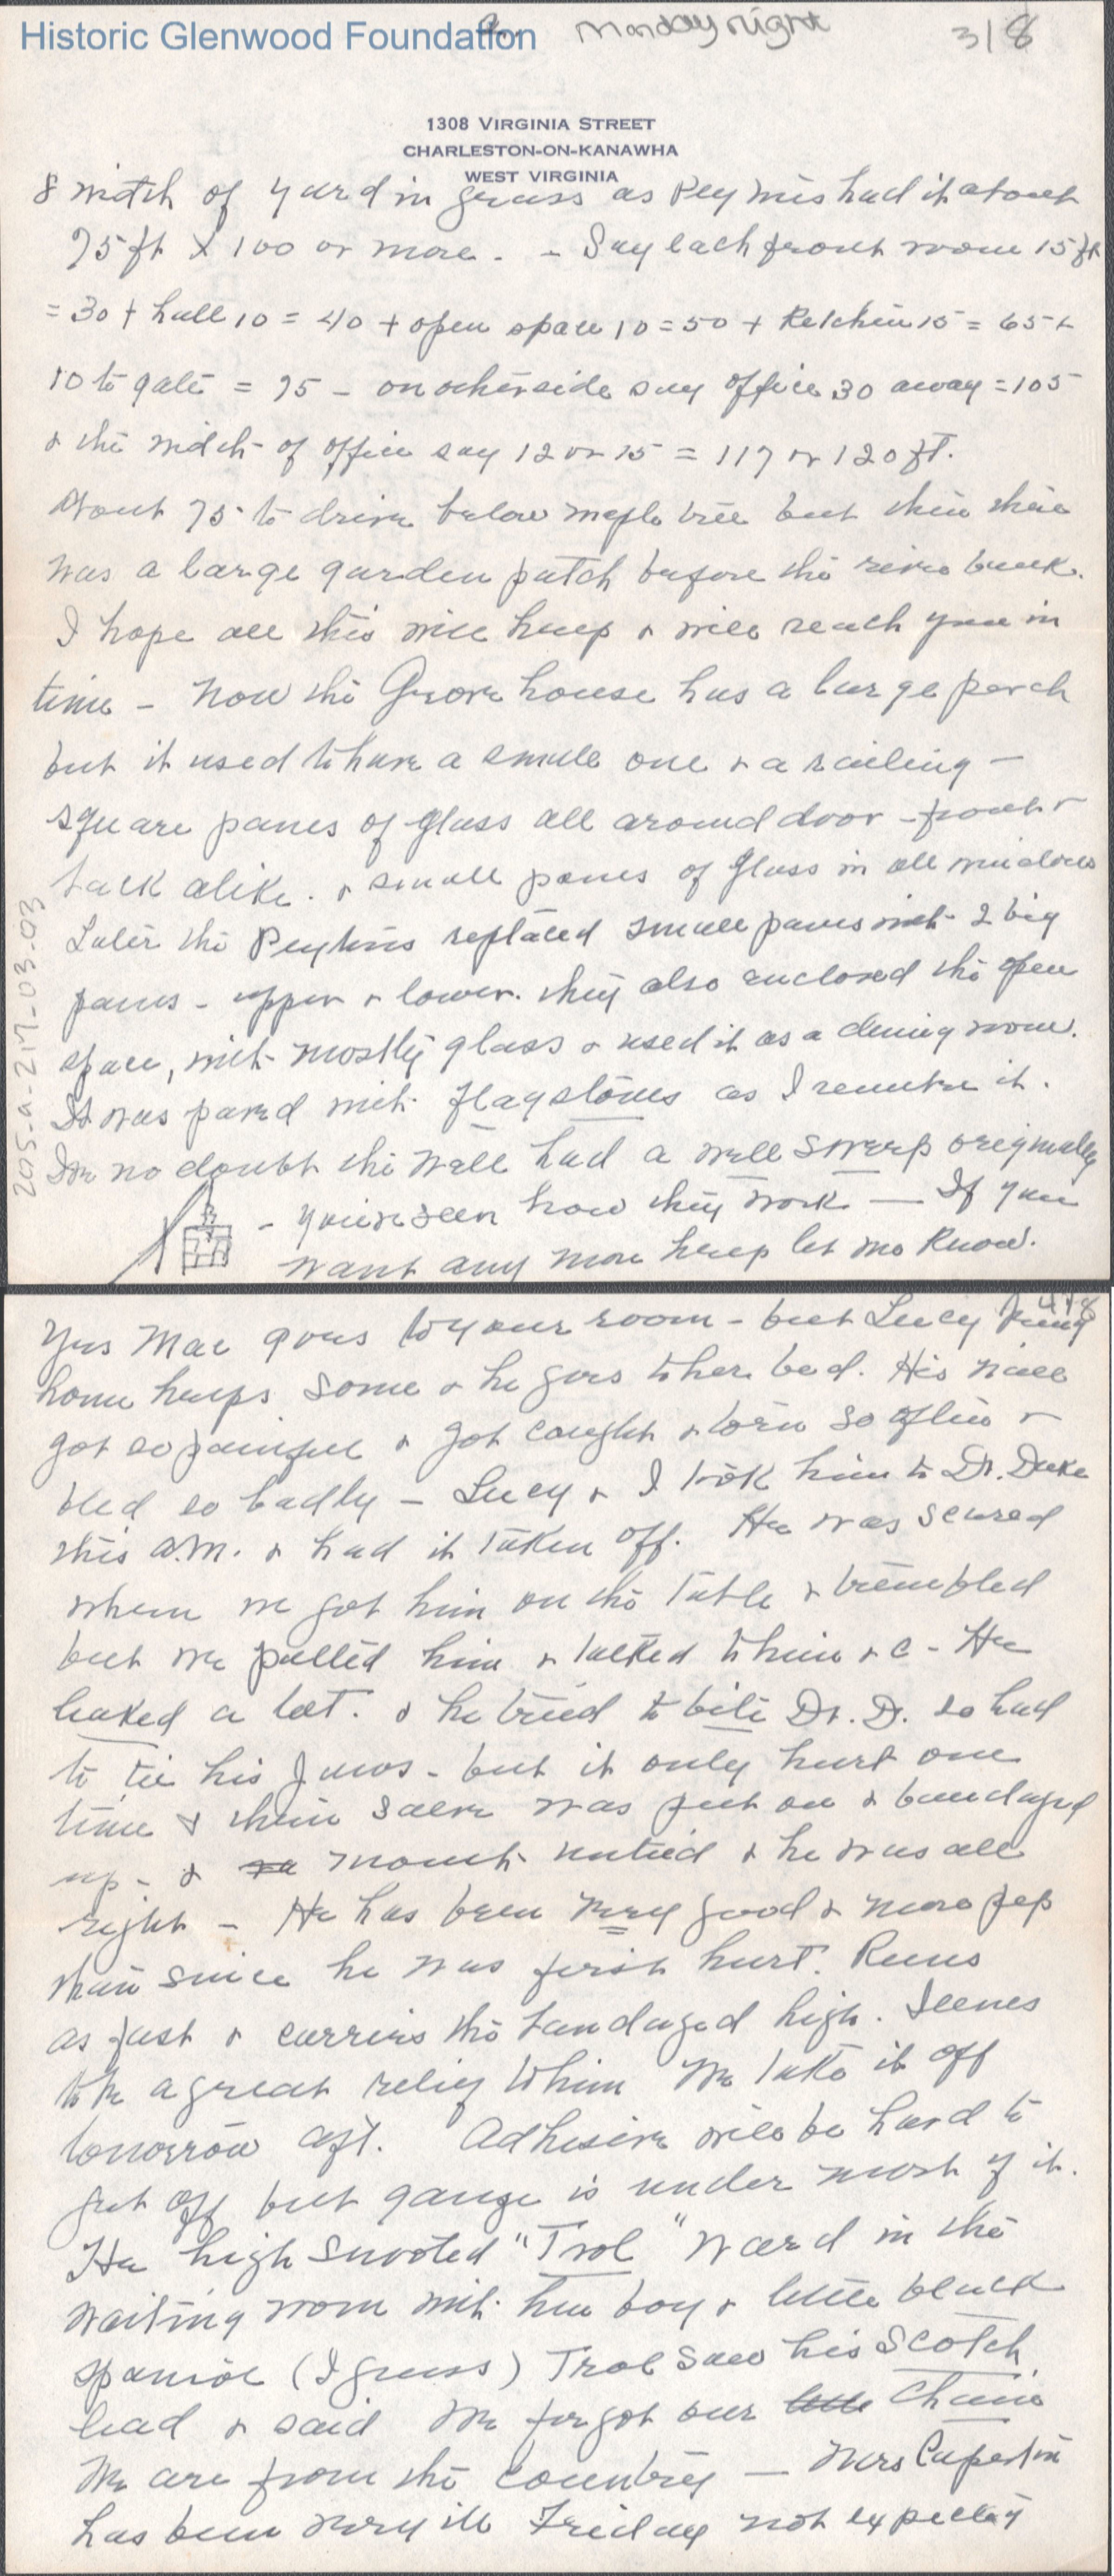 Historic Glenwood Foundation
Monday night
3/8
1308 VIRGINIA STREET
CHARLESTON-ON-KANAWHA
WEST VIRGINIA
& width of yard in grass as Peytons had it about
75 ft X 100 or more. - Say each front room 15 ft
= 30 + hall 10 = 40 + open space 10 = 50 + Kitchen 15 = 65 +
10 to gate = 75 - on other side say office 30 away = 105
& the width of office say 12 or 15 = 117 or 120 ft.
About 75 to drive below maple tree but then there
was a large garden patch before the river bank.
I hope all this will help & will reach you in
time - Now the Grove house has a large porch
but it used to have a small one & a railing -
square panes of glass all around door - front &
back alike. & small panes of glass in all windows
Later the Peytons replaced small panes with 2 big
panes - upper & lower. They also enclosed the open
space, with mostly glass & used it as a dining room.
It was paved with flagstones as I remember it.
I've no doubt the well had a well sweep originally
- you've seen how they work — If you
want any more help let me know.
205-a-217-03-03
4/8
Yes Mac goes to your room - but Lucy being
home helps some & he goes to her bed. His nail
got so painful & got caught & torn so often &
bled so badly - Lucy & I took him to Dr. Duke
this a.m. & had it taken off. He was scared
when we got him on the table & trembled
but we petted him & talked to him &c - He
leaked a lot. & he tried to bite Dr. D. so had
to tie his jaws - but it only hurt one
time & then salve was put on & bandaged
up - & mouth untied & he was all
right - He has been very good & more pep
than since he was first hurt. Runs
as fast & carries the bandaged high. Seems
to be a great relief to him We take it off
tomorrow aft. Adhesive will be hard to
get off but gauze is under most of it.
He high snooted "Trol" Ward in the
waiting room with her boy & little black
spaniel (I guess) Trol saw his Scotch
lead & said We forgot our chain
We are from the country — Mrs
has been very ill Friday not expected